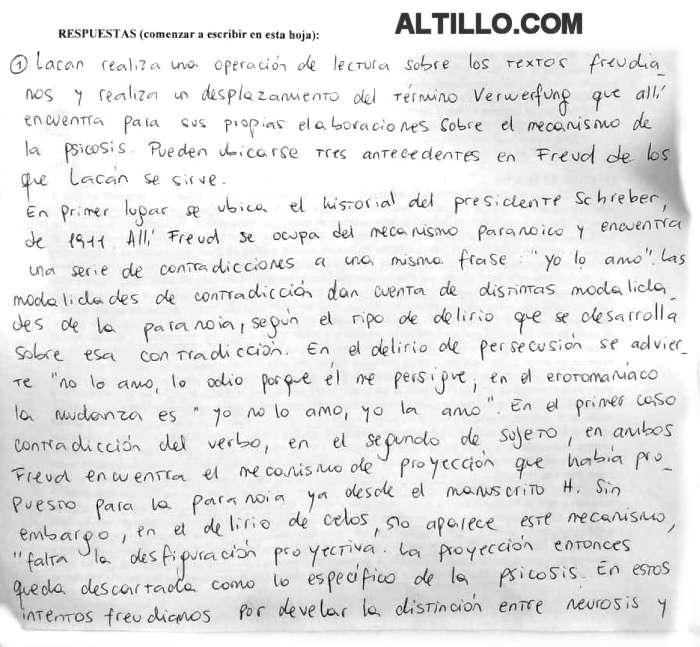 RESPUESTAS (comenzar a escribir en esta hoja):
ALTILLO.COM
① Lacan realiza una operación de lectura sobre los textos freudia_
nos y realiza un desplazamiento del término Verwerfung que allí
encuentra para sus propias elaboraciones sobre el mecanismo de
la psicosis. Pueden ubicarse tres antecedentes en Freud de los
que Lacán se sirve.
En primer lugar se ubica el historial del presidente Schreber,
de 1911. Allí Freud se ocupa del mecanismo paranoico y encuentra
una serie de contradicciones a una misma frase: "yo lo amo". Las
modalidades de contradicción dan cuenta de distintas modalida_
des de la paranoia, según el tipo de delirio que se desarrolla
sobre esa contradicción. En el delirio de persecusión se advier_
te "no lo amo, lo odio porque él me persigue; en el erotomaníaco
la mudanza es "yo no lo amo, yo la amo". En el primer caso
contradicción del verbo, en el segundo de sujeto, en ambos
Freud encuentra el mecanismo de proyección que había pro_
puesto para la paranoia ya desde el manuscrito H. Sin
embargo, en el delirio de celos, no aparece este mecanismo,
"falta la desfiguración proyectiva. La proyección entonces
queda descartada como lo específico de la psicosis. En estos
intentos freudianos por develar la distinción entre neurosis y